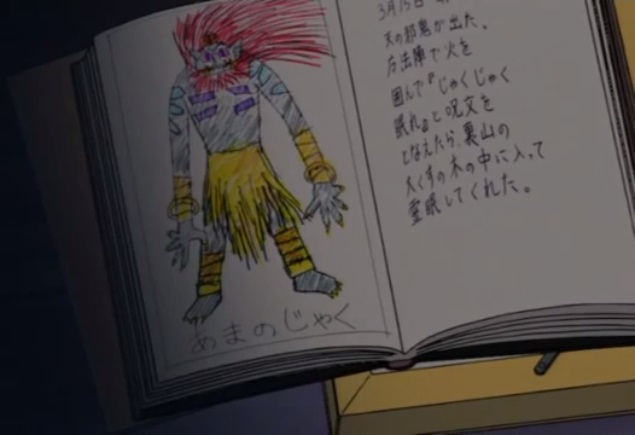 3月15日
天の邪鬼が出た。
方法陣で火を
囲んで『じゃくじゃく
眠れ』と呪文を
となえたら、裏山の
大くすの木の中に入って
霊眠してくれた。
あまのじゃく